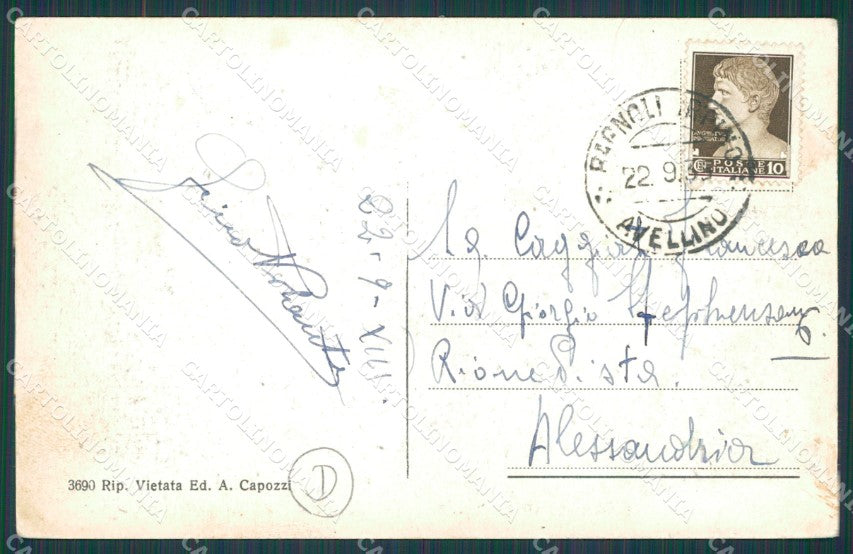 BAGNOLI IRPINO
22.9.3
AVELLINO
POSTE
ITALIANE 10
22-9-XVII
Sg. Caggiano Francesco
Via Giorgio Stephenson
Rione Pista.
Alessandria
3690 Rip. Vietata Ed. A. Capozzi
D
CARTOLINOMANIA